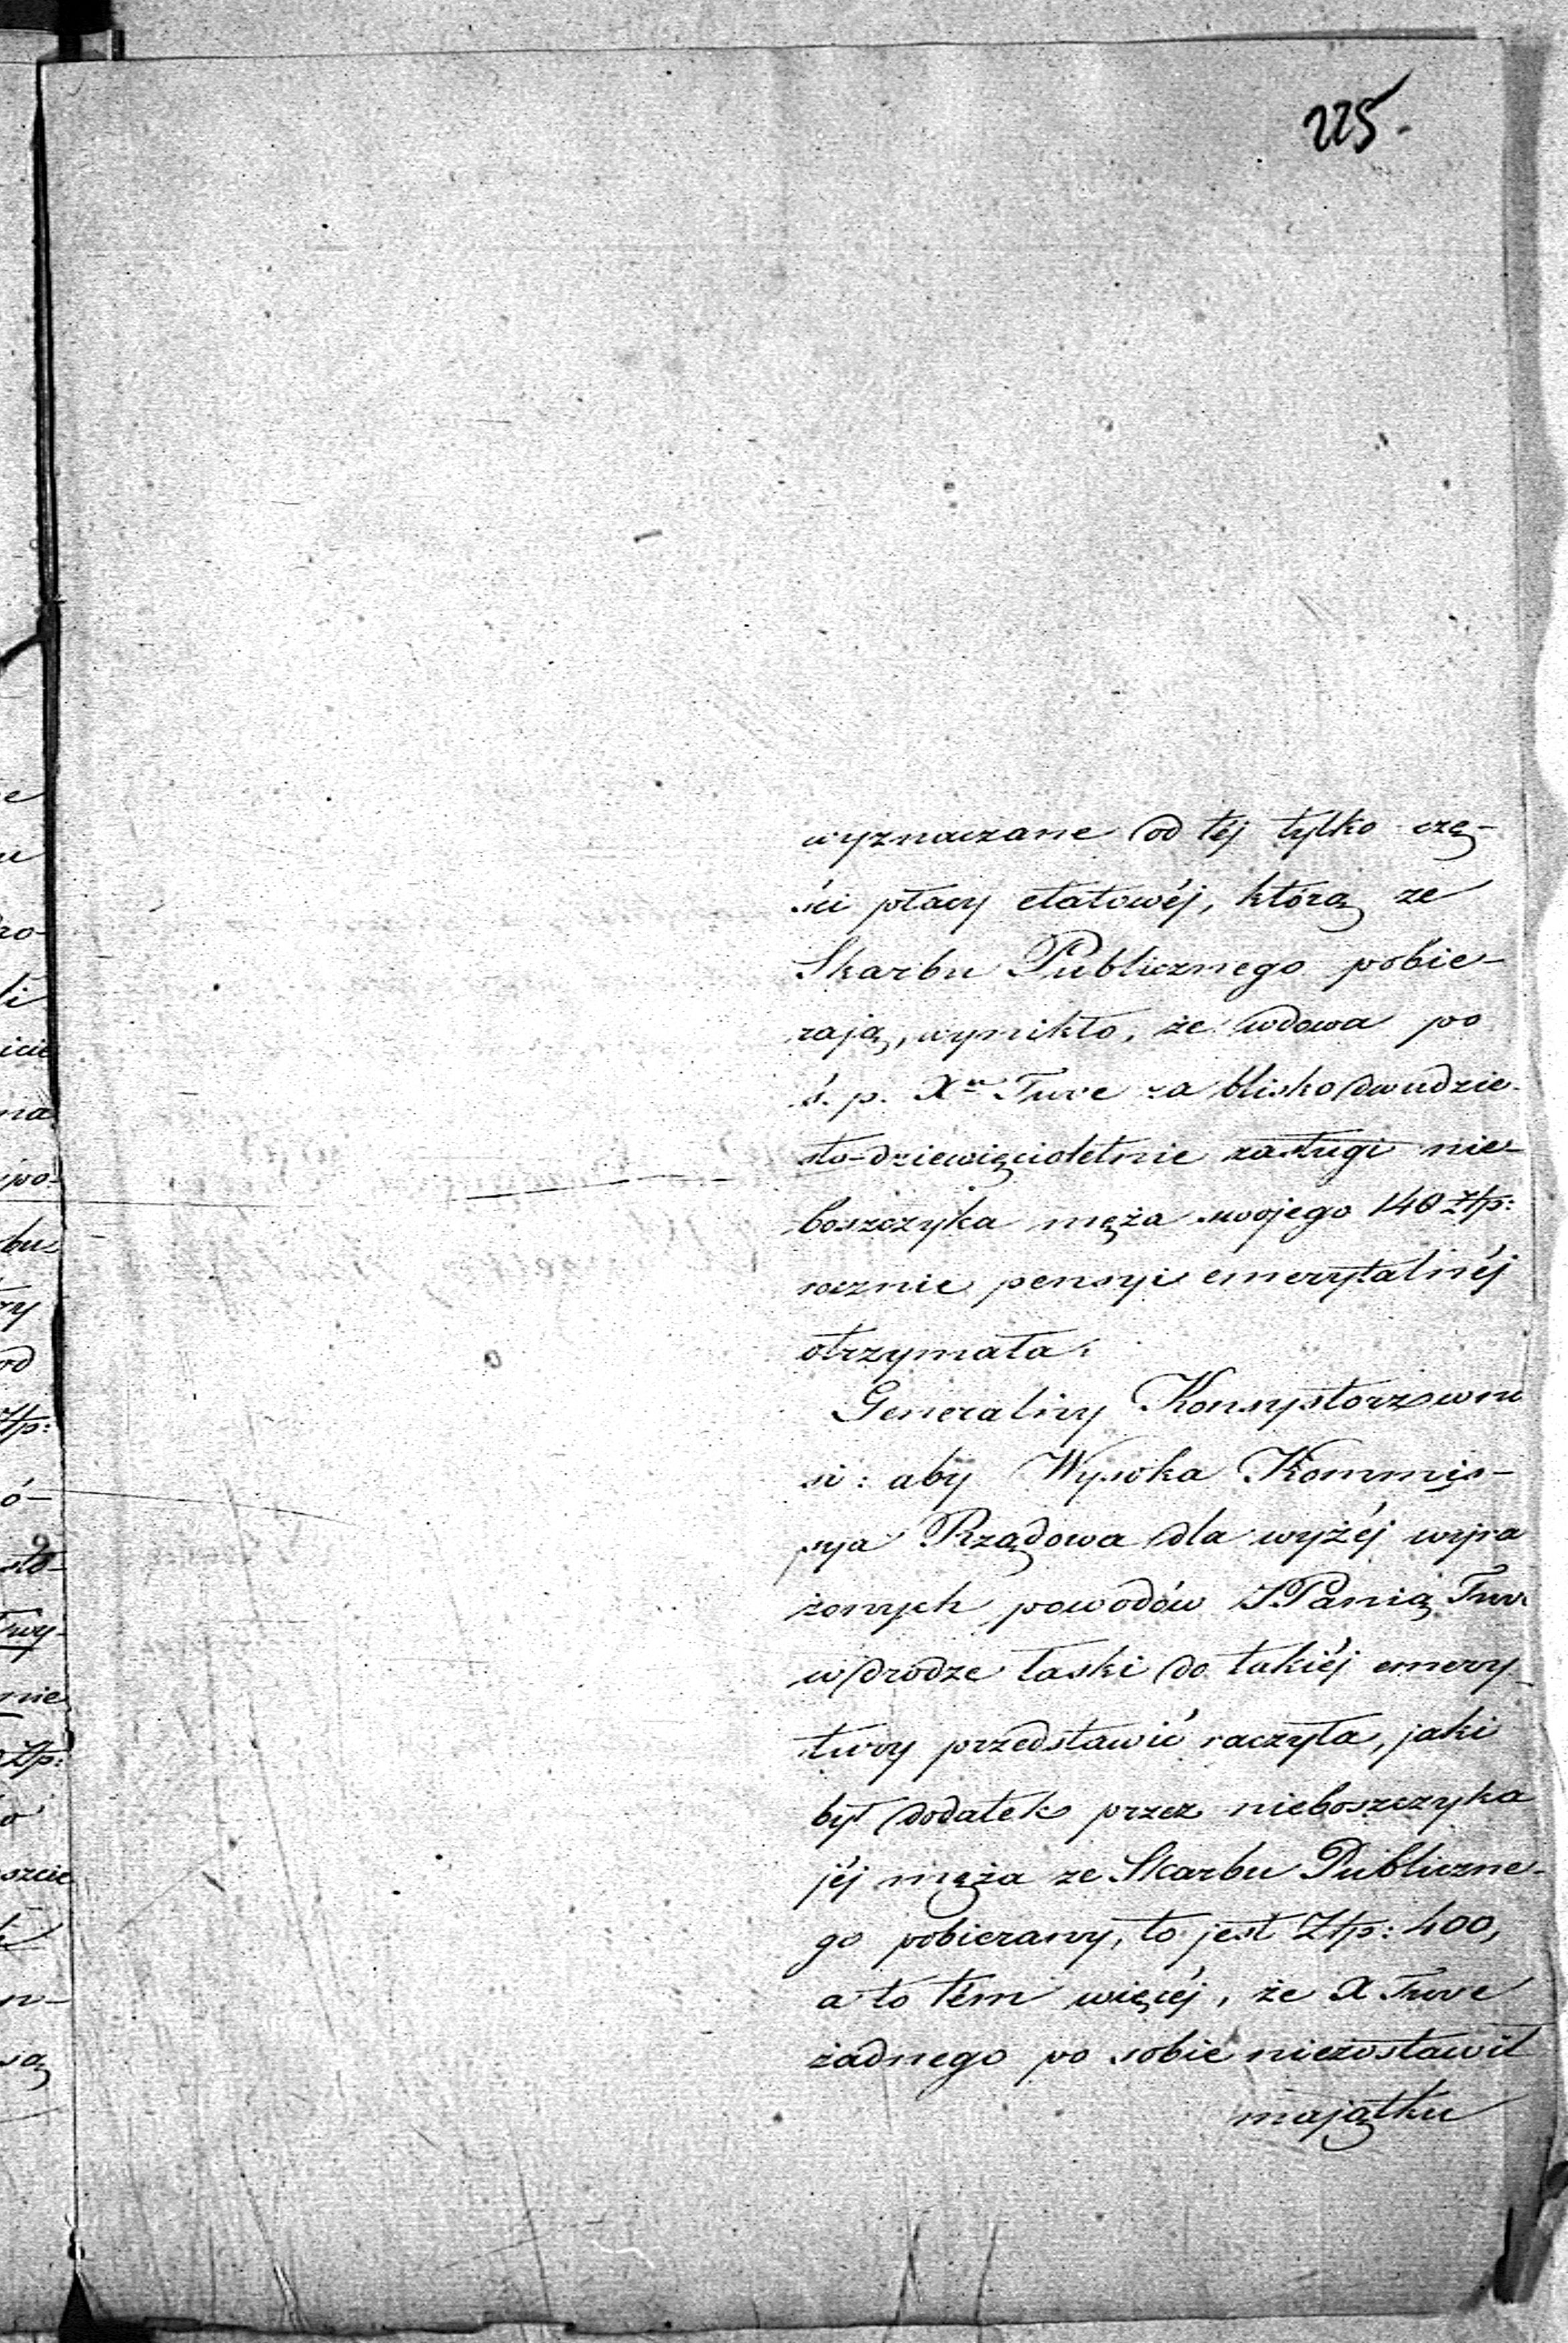 225.
wyznaczane od téj tylko czę-
ści płacy etatowéj, którą ze
Skarbu Publicznego pobie-
rają, wynikło, że wdowa po
ś. p. X<sup>u</sup> Tuve za blisko dwudzie-
sto-dziewięcioletnie zasługi nie-
boszczyka męża swojego 140 Złp:
rocznie pensyi emerytalnéj
otrzymała.
Generalny Konsystorz wno
si: aby Wysoka Kommis-
sya Rządowa dla wyżéj wyra
żonych powodów JPanią Tuve
w drodze łaski do takiéj emery-
tury przedstawić raczyła, jaki
był dodatek przez nieboszczyka
jéj męża ze Skarbu Publiczne-
go pobierany, to jest Złp: 400,
a to tém więcéj, że X Tuve
żadnego po sobie niezostawił
majątku